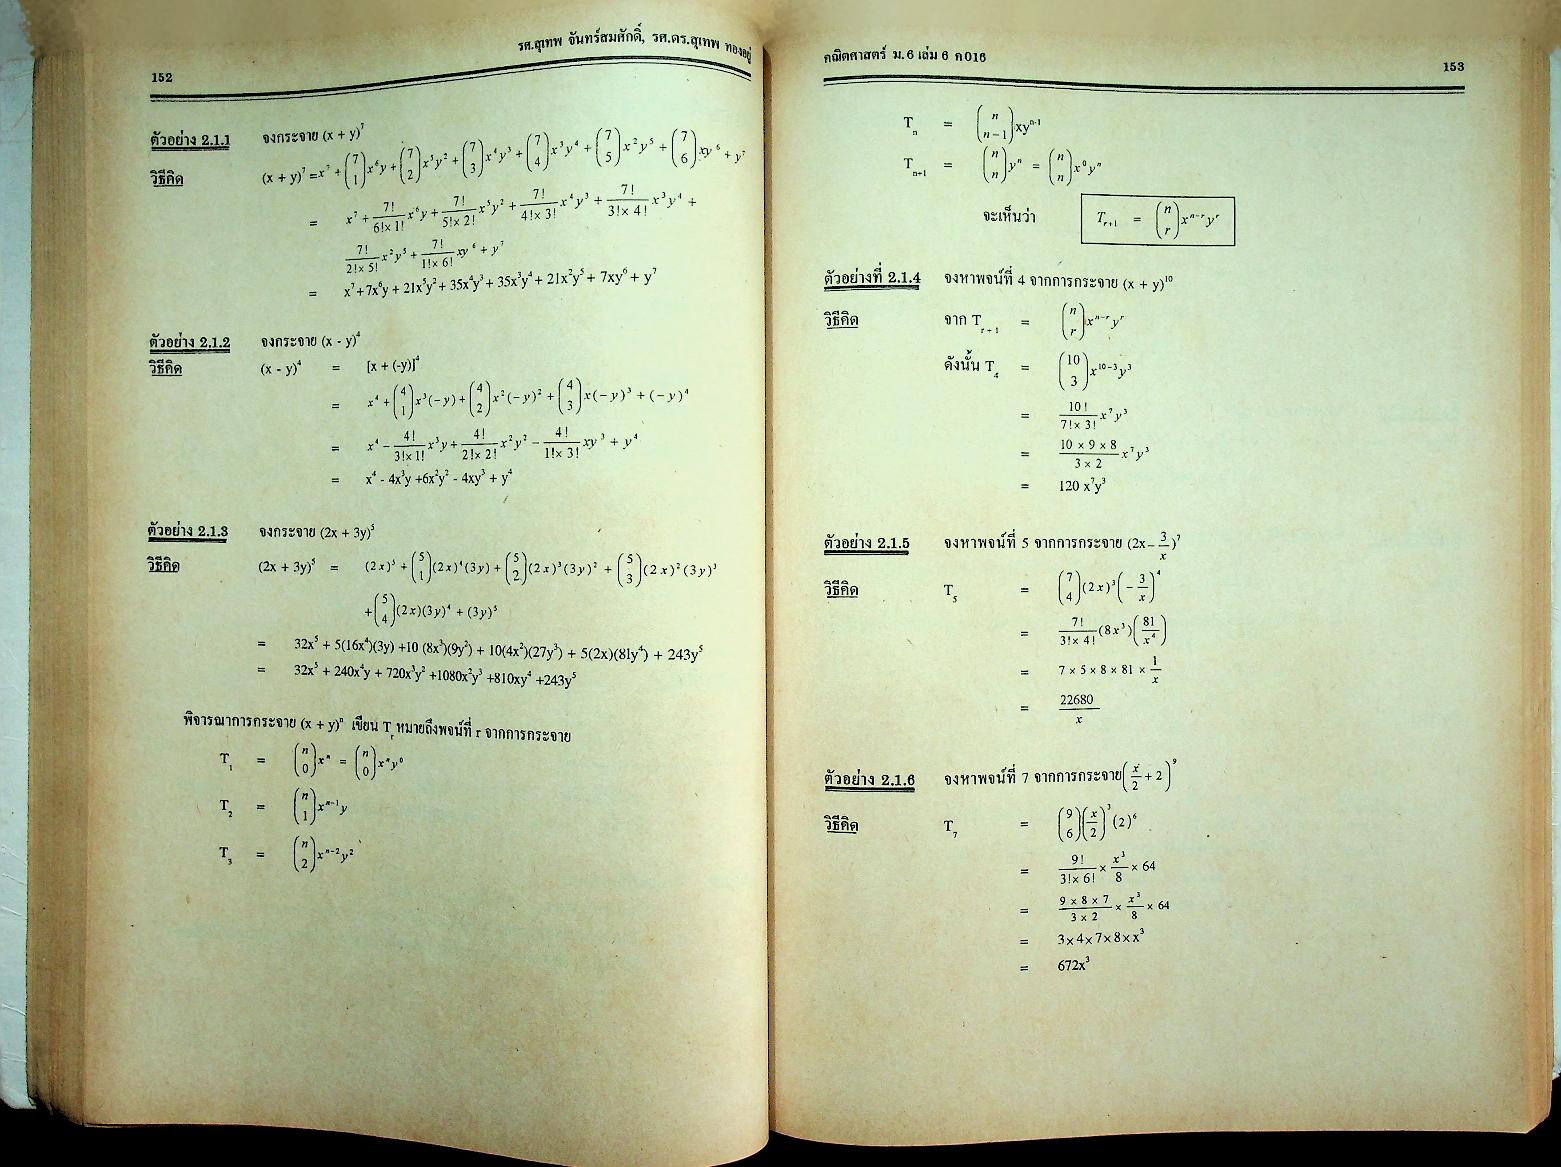 152
รศ.สุเทพ จันทร์สมศักดิ์, รศ.ดร.สุเทพ ทองอยู่
ตัวอย่าง 2.1.1 จงกระจาย (x + y)⁷
วิธีคิด (x + y)⁷ = x⁷ + (7 1)x⁶y + (7 2)x⁵y² + (7 3)x⁴y³ + (7 4)x³y⁴ + (7 5)x²y⁵ + (7 6)xy⁶ + y⁷
= x⁷ + 7!/(6!×1!) x⁶y + 7!/(5!×2!) x⁵y² + 7!/(4!×3!) x⁴y³ + 7!/(3!×4!) x³y⁴ +
7!/(2!×5!) x²y⁵ + 7!/(1!×6!) xy⁶ + y⁷
= x⁷ + 7x⁶y + 21x⁵y² + 35x⁴y³ + 35x³y⁴ + 21x²y⁵ + 7xy⁶ + y⁷
ตัวอย่าง 2.1.2 จงกระจาย (x - y)⁴
วิธีคิด (x - y)⁴ = [x + (-y)]⁴
= x⁴ + (4 1)x³(−y) + (4 2)x²(−y)² + (4 3)x(−y)³ + (−y)⁴
= x⁴ − 4!/(3!×1!) x³y + 4!/(2!×2!) x²y² − 4!/(1!×3!) xy³ + y⁴
= x⁴ - 4x³y +6x²y² - 4xy³ + y⁴
ตัวอย่าง 2.1.3 จงกระจาย (2x + 3y)⁵
วิธีคิด (2x + 3y)⁵ = (2x)⁵ + (5 1)(2x)⁴(3y) + (5 2)(2x)³(3y)² + (5 3)(2x)²(3y)³
+ (5 4)(2x)(3y)⁴ + (3y)⁵
= 32x⁵ + 5(16x⁴)(3y) +10 (8x³)(9y²) + 10(4x²)(27y³) + 5(2x)(81y⁴) + 243y⁵
= 32x⁵ + 240x⁴y + 720x³y² +1080x²y³ +810xy⁴ +243y⁵
พิจารณาการกระจาย (x + y)ⁿ เขียน Tᵣ หมายถึงพจน์ที่ r จากการกระจาย
T₁ = (n 0)xⁿ = (n 0)xⁿy⁰
T₂ = (n 1)xⁿ⁻¹y
T₃ = (n 2)xⁿ⁻²y²
คณิตศาสตร์ ม.6 เล่ม 6 ค016
153
Tₙ = (n n−1)xyⁿ⁻¹
Tₙ₊₁ = (n n)yⁿ = (n n)x⁰yⁿ
จะเห็นว่า Tᵣ₊₁ = (n r)xⁿ⁻ʳyʳ
ตัวอย่างที่ 2.1.4 จงหาพจน์ที่ 4 จากการกระจาย (x + y)¹⁰
วิธีคิด จาก Tᵣ₊₁ = (n r)xⁿ⁻ʳyʳ
ดังนั้น T₄ = (10 3)x¹⁰⁻³y³
= 10!/(7!×3!) x⁷y³
= (10 × 9 × 8)/(3 × 2) x⁷y³
= 120 x⁷y³
ตัวอย่าง 2.1.5 จงหาพจน์ที่ 5 จากการกระจาย (2x − 3/x)⁷
วิธีคิด T₅ = (7 4)(2x)³(−3/x)⁴
= 7!/(3!×4!) (8x³)(81/x⁴)
= 7 × 5 × 8 × 81 × 1/x
= 22680/x
ตัวอย่าง 2.1.6 จงหาพจน์ที่ 7 จากการกระจาย (x/2 + 2)⁹
วิธีคิด T₇ = (9 6)(x/2)³(2)⁶
= 9!/(3!×6!) × x³/8 × 64
= (9 × 8 × 7)/(3 × 2) × x³/8 × 64
= 3×4×7×8×x³
= 672x³